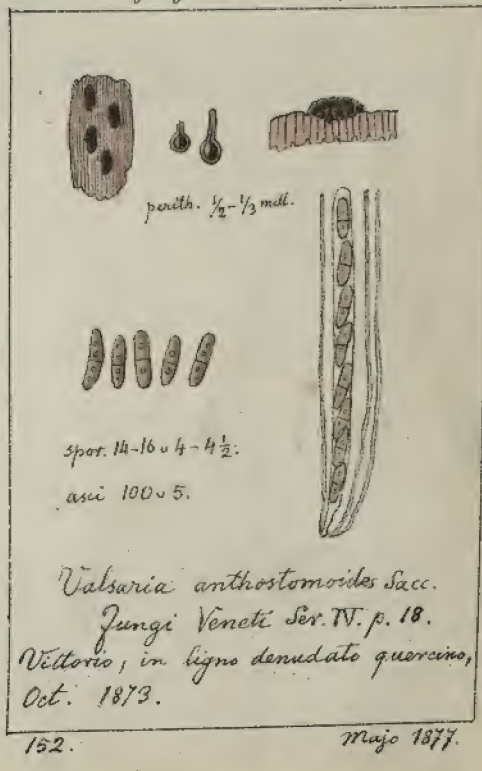 perith. ½-⅓ mill.
spor. 14-16 ᴗ 4-4½.
asci 100 ᴗ 5.
Valsaria anthostomoides Sacc.
Fungi Veneti Ser. IV. p. 18.
Vittorio, in ligno denudato quercino,
Oct. 1873.
152. Majo 1877.